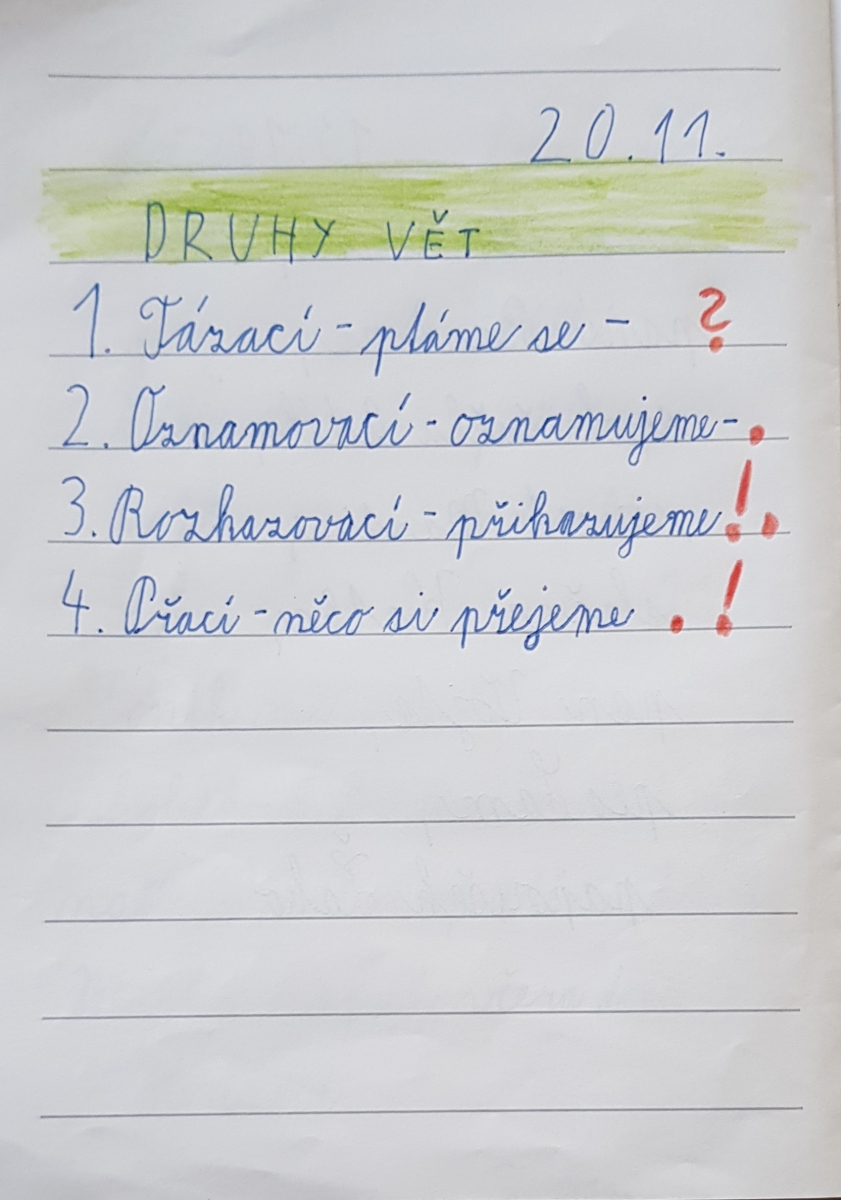 20.11.
DRUHY VĚT
1. Tázací - ptáme se - ?
2. Oznamovací - oznamujeme - .
3. Rozkazovací - přikazujeme ! .
4. Přací - něco si přejeme . !